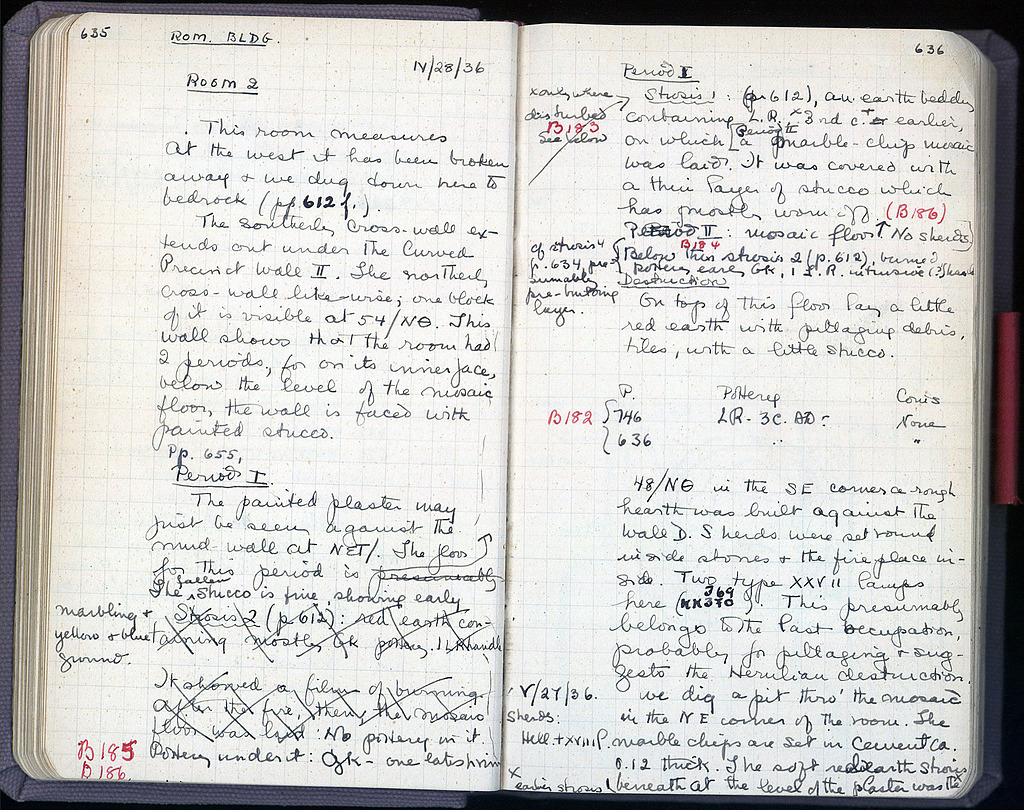 635
ROM. BLDG.
IV/28/36
ROOM 2
This room measures
At the west it has been broken
away & we dug down here to
bedrock (pp. 612 f.).
The southerly cross-wall ex-
tends out under the Curved
Precinct Wall II. The northerly
cross-wall like-wise; one block
of it is visible at 54/ΝΘ. This
wall shows that the room had
2 periods, for on its inner face,
below the level of the mosaic
floor, the wall is faced with
painted stucco.
Pp. 655,
Period I.
The painted plaster may
just be seen against the
mud-wall at ΝΣΤ/. The floor
for this period is presumably
The fallen stucco is fine, showing early
marbling &
yellow & blue
ground.
Strosis 2 (p. 612): red earth con-
taining mostly Gk pottery. 1 LR handle
It showed a film of burning.
After the fire, then, the mosaic
floor was laid. No pottery in it
Pottery under it: Gk – one late
B 185
B 186
636
Period II
x only where
disturbed
B 183
see below
Strosis 1: (p. 612), an earth bedding
containing L.R. x 3rd c. + or earlier,
on which Period II a marble-chip mosaic
was laid. It was covered with
a thin layer of stucco which
has mostly worn off. (B 186)
Period II: mosaic floor ↑ No sherds
B 184
Below this strosis 2 (p. 612), burned
pottery early Gk, 1 L.R. intrusive
cf strosis 4
p. 634, pre-
sumably
pre-building
layer.
Destruction
On top of this floor lay a little
red earth with pillaging debris,
tiles, with a little stucco.
P. Pottery Coins
B 182 { 746 LR - 3 C. AD None
636 " "
48/ΝΘ in the SE corner a rough
hearth was built against the
Wall D. Sherds were set round
inside stones & the fireplace in-
side. Two type XXVII lamps
here (369 370). This presumably
belongs to the last occupation,
probably for pillaging & sug-
gests the Herulian destruction.
V/27/36.
Sherds:
Hell. + XVIII P.
x
earlier strosis
we dig a pit thro' the mosaic
in the NE corner of the room. The
marble chips are set in cement ca.
0.12 thick. The soft red earth strosis x
beneath at the level of the plaster was the